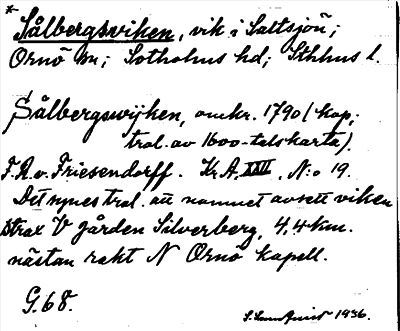 * Sålbergsviken, vik i Saltsjön;
Ornö sn; Sotholms hd; Sthlms l.
Sålbergswijken, omkr. 1790 (kop;
tral. av 1600-talskarta).
F.R.v. Friesendorff. Kr.A. XXII, N:o 19.
Det synes tral. att namnet avsett viken
strax V gården Silverberg, 4,4 km.
nästan rakt N Ornö kapell.
G. 68.
1936.